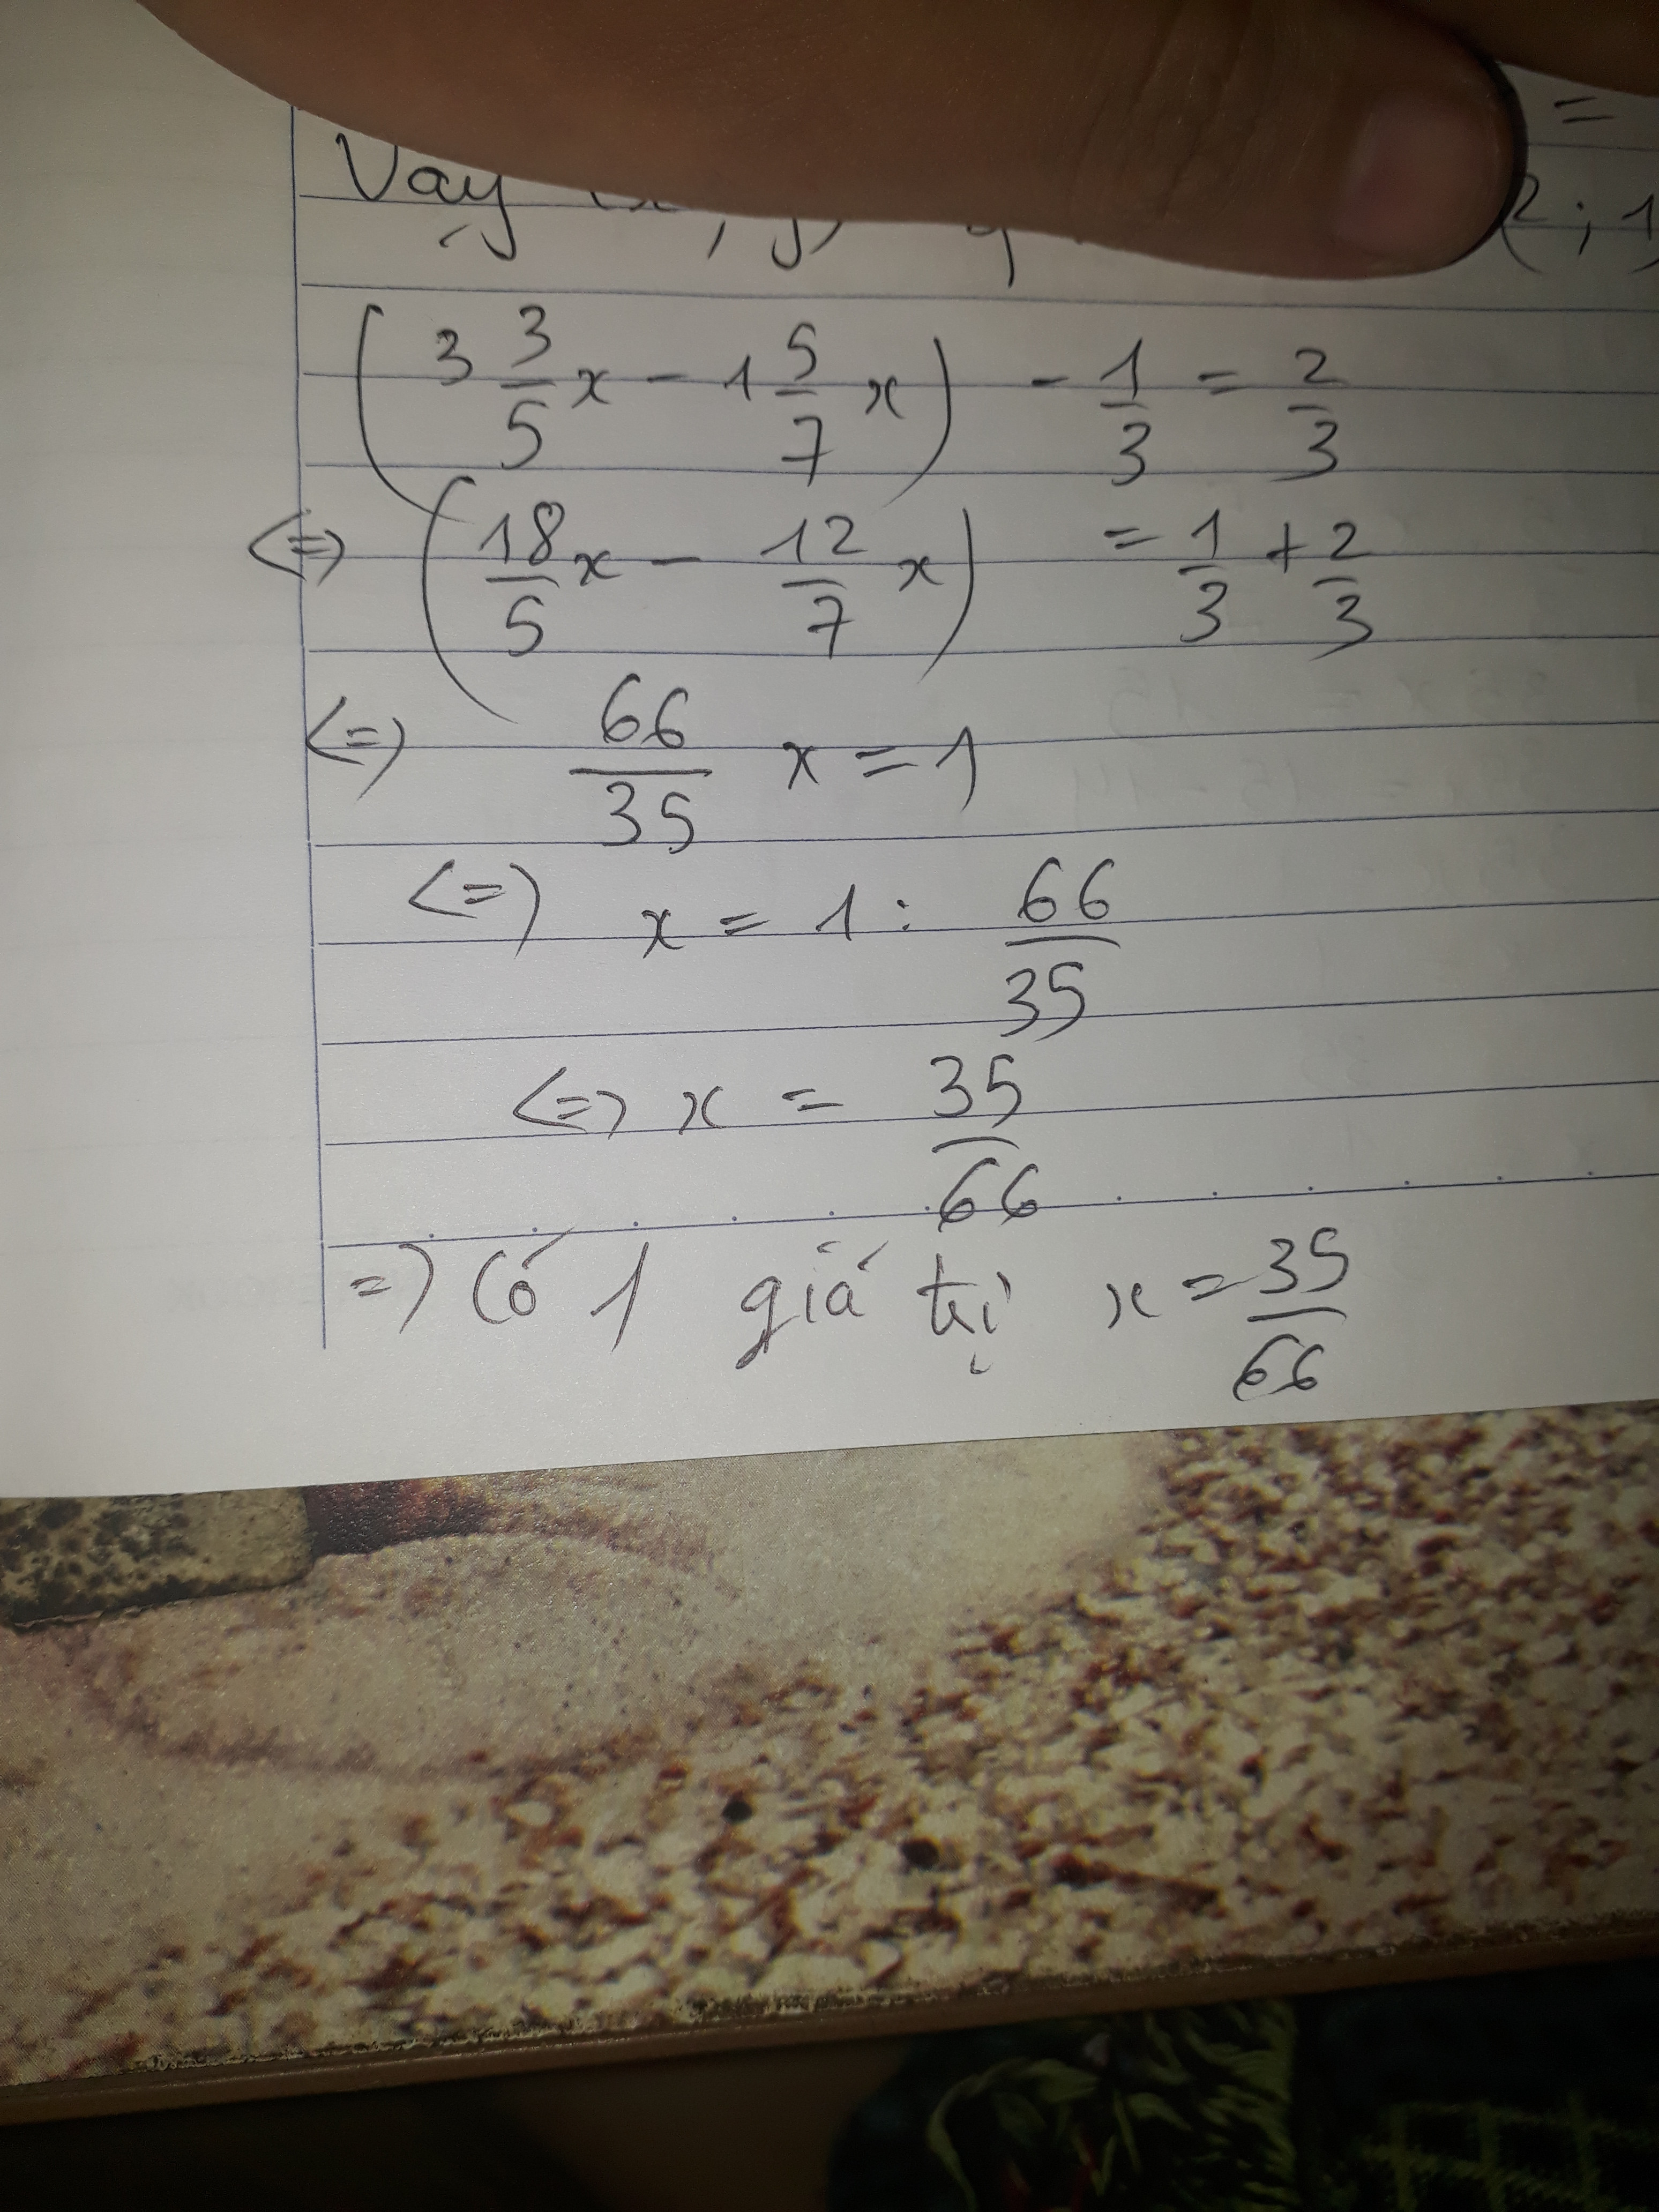 =
Vậy 2 ; 1)
(3 3/5 x - 1 5/7 x) - 1/3 = 2/3
<=> (18/5 x - 12/7 x) = 1/3 + 2/3
<=> 66/35 x = 1
<=> x = 1 : 66/35
<=> x = 35/66
=> Có 1 giá trị x = 35/66